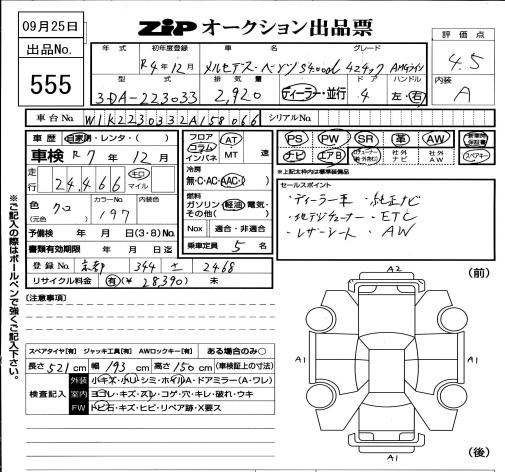 09月25日
出品No.
555
ZIP オークション出品票
評価点
4.5
内装
A
年式 初年度登録 車名 グレード
R4年12月 メルセデス・ベンツ S400d 4マチック AMGライン
型式 排気量 ドア ハンドル
3DA-223033 2,920 ディーラー・並行 4 左・右
車台No. W1K2230332A158066 シリアルNo.
車歴 自家用・レンタ・( )
車検 R7年12月
走行 24,466 キロ マイル
色 クロ (元色) カラーNo. 197 内装色
予備検 年 月 日(3・8)No.
書類有効期限 年 月 日迄
登録No. 京都 344 さ 2468
リサイクル料金 有(¥ 28,390) 未
フロア コラム インパネ AT・MT 速
冷房 無・C・AC・AAC
燃料 ガソリン・軽油・電気・その他( )
Nox 適合・非適合
乗車定員 5名
PS PW SR 革 AW 新車時保証書
ナビ エアB 社外ナビ 社外AW スペアキー
*上記太枠内は標準装備品
セールスポイント
・ディーラー車 ・純正ナビ
・地デジチューナー ・ETC
・レザーシート ・AW
※ご記入の際はボールペンで強くご記入下さい。
[注意事項]
スペアタイヤ[有] ジャッキ工具[有] AWロックキー[有] ある場合のみ○
長さ521cm 幅193cm 高さ150cm (車検証上の寸法)
検査記入
外装 小キズ・小凹・シミ・ホイルA・ドアミラー(A・ワレ)
室内 ヨゴレ・キズ・スレ・コゲ・穴・キレ・破れ・ウキ
FW トビ石・キズ・ヒビ・リペア跡・X要ス
(前)
A2
A1
A1
A1
(後)